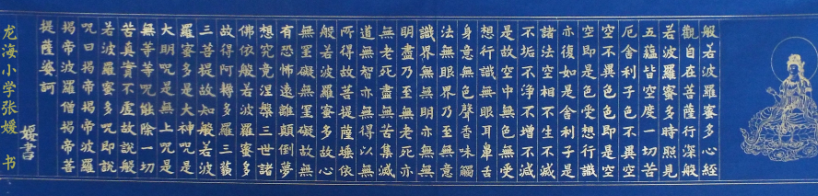 般若波羅蜜多心經
觀自在菩薩行深般
若波羅蜜多時照見
五蘊皆空度一切苦
厄舍利子色不異空
空不異色色即是空
空即是色受想行識
亦復如是舍利子是
諸法空相不生不滅
不垢不淨不增不減
是故空中無色無受
想行識無眼耳鼻舌
身意無色聲香味觸
法無眼界乃至無意
識界無無明亦無無
明盡乃至無老死亦
無老死盡無苦集滅
道無智亦無得以無
所得故菩提薩埵依
般若波羅蜜多故心
無罣礙無罣礙故無
有恐怖遠離顛倒夢
想究竟涅槃三世諸
佛依般若波羅蜜多
故得阿耨多羅三藐
三菩提故知般若波
羅蜜多是大神咒是
大明咒是無上咒是
無等等咒能除一切
苦真實不虛故說般
若波羅蜜多咒即說
咒曰揭帝揭帝波羅
揭帝波羅僧揭帝菩
提薩婆訶
媛書
龙海小学张媛 书